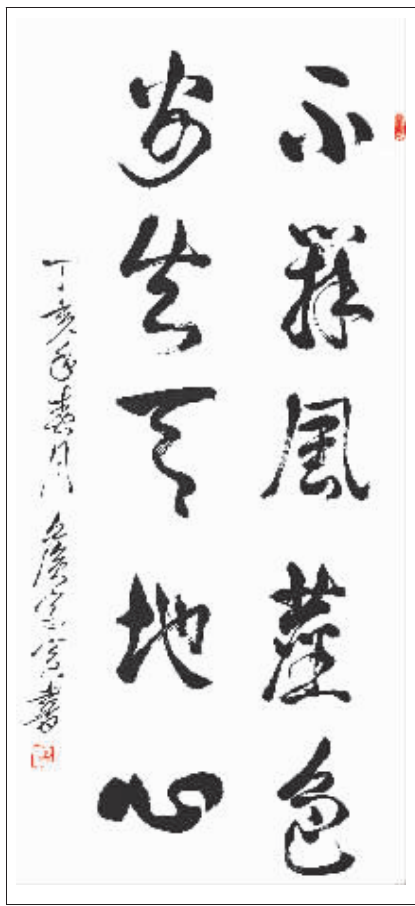 不辨風塵色
安知天地心
丁亥年春月 書